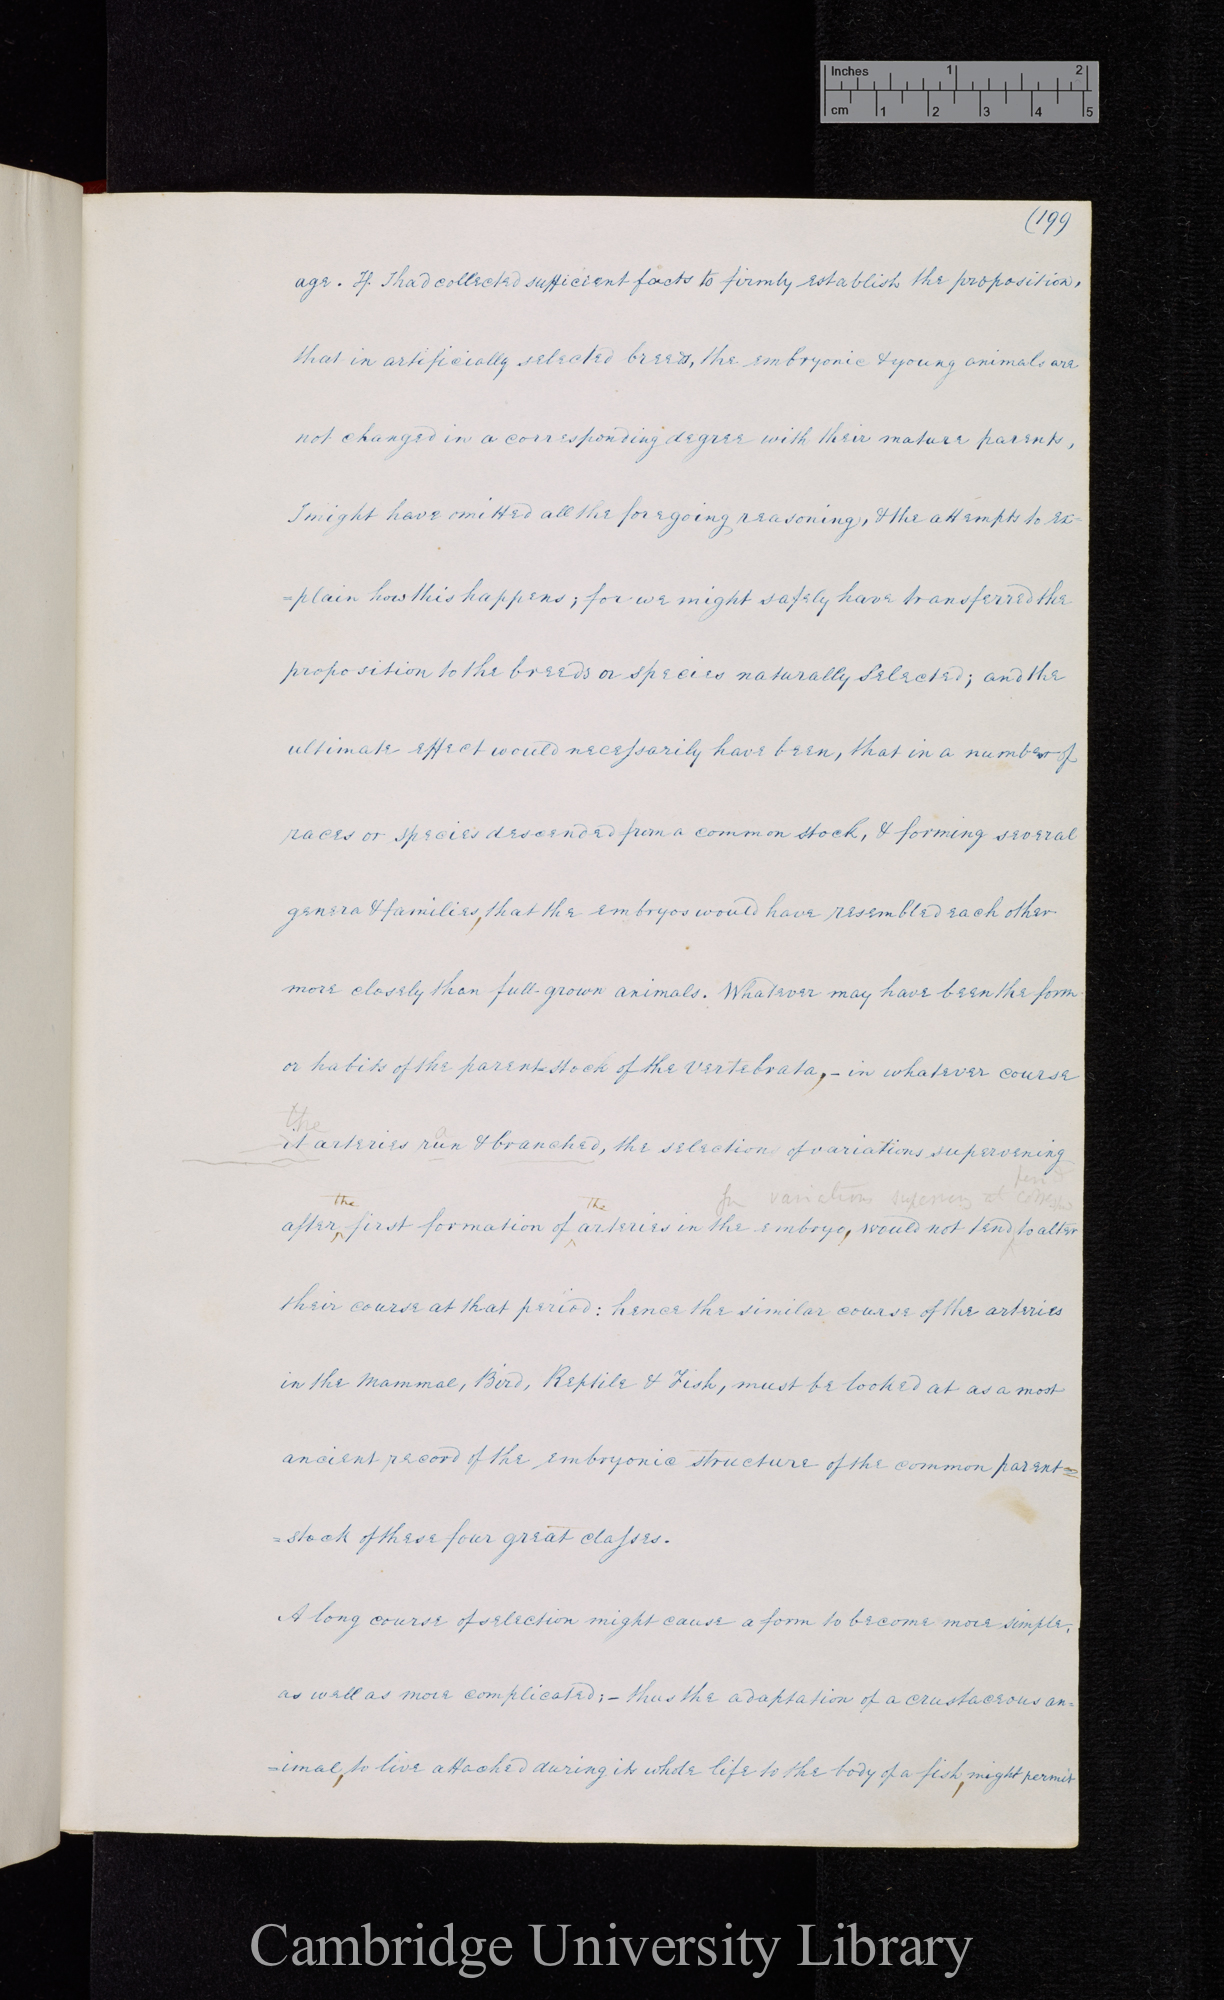 Inches 1 2
cm 1 2 3 4 5
(199
age. If I had collected sufficient facts to firmly establish the proposition,
that in artificially selected breeds, the embryonic & young animals are
not changed in a corresponding degree with their mature parents,
I might have omitted all the foregoing reasoning, & the attempts to ex=
=plain how this happens; for we might safely have transferred the
proposition to the breeds or species naturally selected; and the
ultimate effect would necessarily have been, that in a number of
races or species descended from a common stock, & forming several
genera & families, that the embryos would have resembled each other
more closely than full-grown animals. Whatever may have been the form
or habits of the parent-stock of the Vertebrata, – in whatever course
the
it arteries run & branched, the selection of variations supervening
for variations supervening at
the the
after first formation of arteries in the embryo, would not tend to alter
their course at that period: hence the similar course of the arteries
in the Mammal, Bird, Reptile & Fish, must be looked at as a most
ancient record of the embryonic structure of the common parent=
=stock of these four great classes.
A long course of selection might cause a form to become more simple,
as well as more complicated; – thus the adaptation of a crustaceous an=
=imal, to live attached during its whole life to the body of a fish, might permit
Cambridge University Library